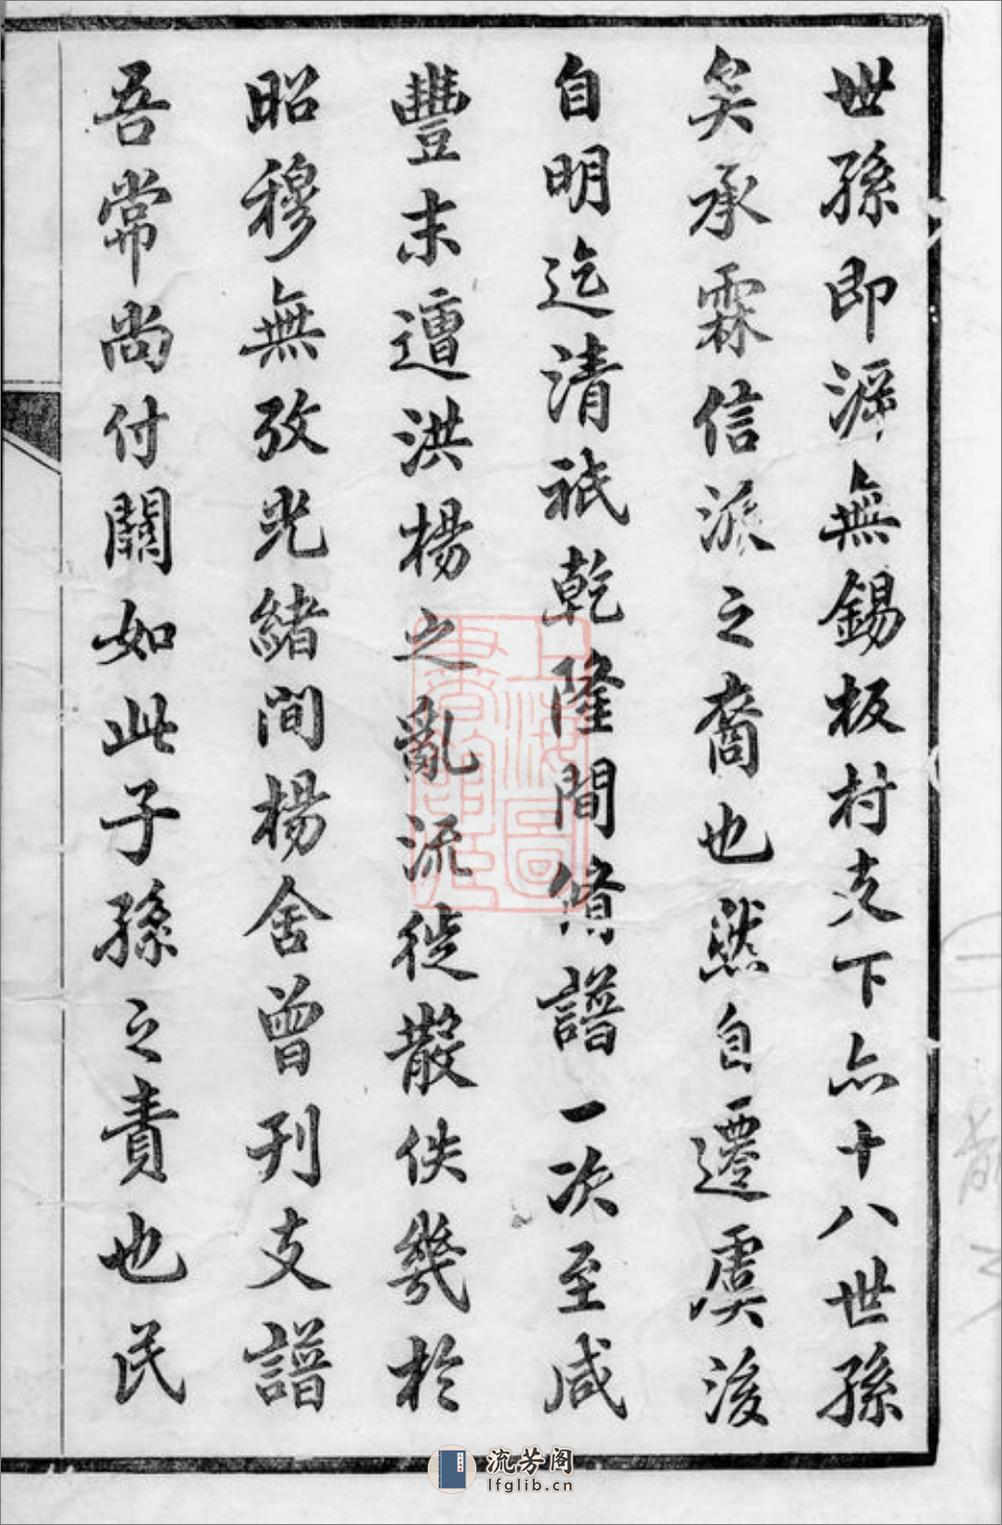 世孫即涿無錫板村支下亦十八世孫
矣承霖信派之裔也然自遷虞後
自明迄清祇乾隆間脩譜一次至咸
豐末遭洪楊之亂流徙散佚幾於
昭穆無攷光緒間楊舍曾刊支譜
吾常尚付闕如此子孫之責也民
上海圖書館藏
流芳阁
lfglib.cn